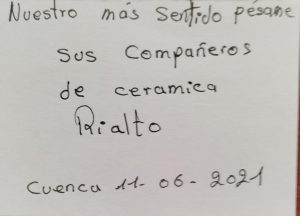 Nuestro más sentido pésame
Sus Compañeros
de ceramica
Rialto
Cuenca 11-06-2021